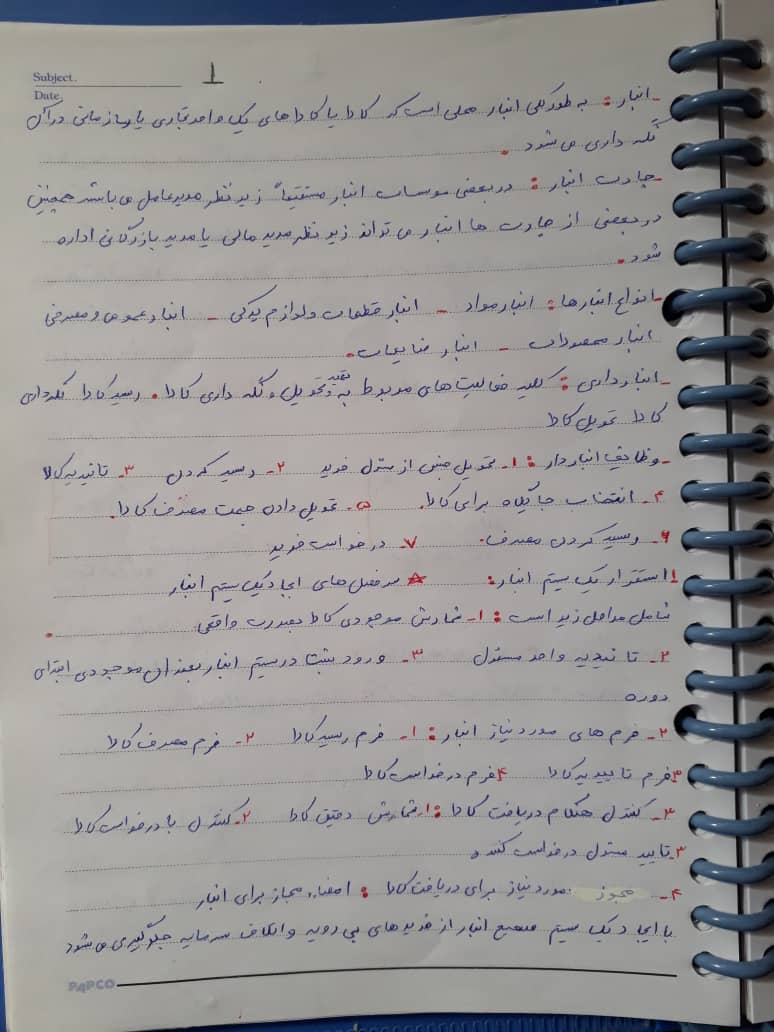 Subject.
1
Date.
-انبار: به طور کلی انبار محلی است که کالا یا کالاهای یک واحد تجاری یا سازمانی در آن
نگه داری می شود.
-چارت انبار: در بعضی موسسات انبار مستقیماً زیر نظر مدیر عامل می باشد همچنین
در بعضی از چارت ها انبار می تواند زیر نظر مدیر مالی یا مدیر بازرگانی اداره
شود.
-انواع انبارها: انبار مواد - انبار قطعات و لوازم یدکی - انبار عمومی و مصرفی
انبار محصولات - انبار ضایعات.
-انبارداری: کلیه فعالیت های مربوط به تحویل و نگه داری کالا. رسید کالا نگهداری
کالا تحویل کالا
-وظایف انباردار: ۱- تحویل جنس از مسئول خرید ۲- رسید کردن ۳- تائیدیه کالا
۴- انتخاب جایگاه برای کالا. ۵- تحویل دادن جهت مصرف کالا.
۶- رسید کردن مصرف. ۷- درخواست خرید
۱ استقرار یک سیستم انبار: سرفصل های ایجاد یک سیستم انبار
شامل مراحل زیر است: ۱- شمارش موجودی کالا بصورت واقعی.
۲- تائیدیه واحد مسئول ۳- ورود و ثبت در سیستم انبار بعنوان موجودی ابتدای
دوره
۲- فرم های مورد نیاز انبار: ۱- فرم رسید کالا ۲- فرم مصرف کالا
۳ فرم تاییدیه کالا ۴ فرم درخواست کالا
۳- کنترل هنگام دریافت کالا: ۱- شمارش دقیق کالا ۲- کنترل با درخواست کالا
۳- تایید مسئول درخواست کننده
۴- مجوز مورد نیاز برای دریافت کالا: امضاء مجاز برای انبار
با ایجاد یک سیستم صحیح انبار از خریدهای بی رویه و اتلاف سرمایه جلوگیری می شود
PAPCO